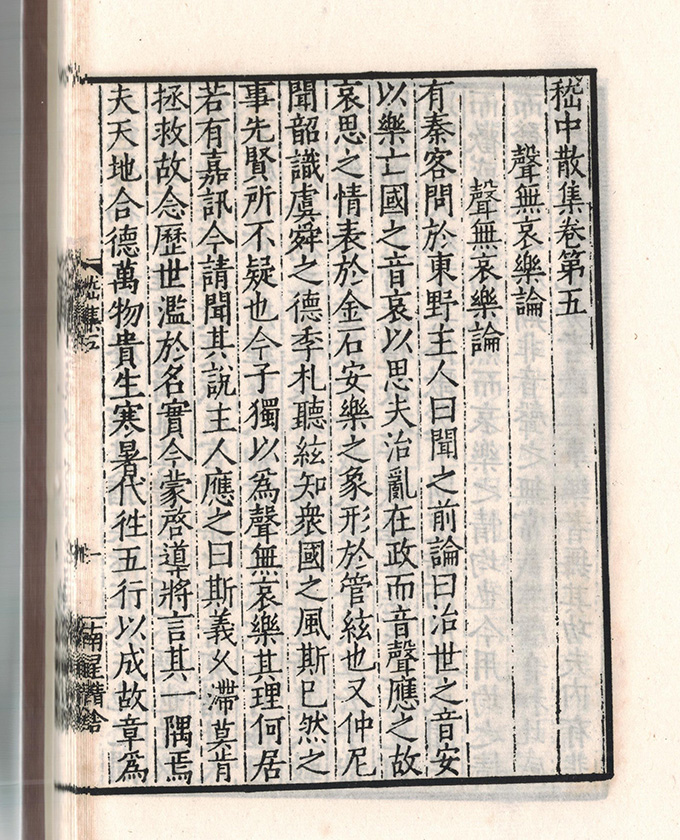 嵇中散集卷第五
聲無哀樂論
聲無哀樂論
有秦客問於東野主人曰聞之前論曰治世之音安
以樂亡國之音哀以思夫治亂在政而音聲應之故
哀思之情表於金石安樂之象形於管絃也又仲尼
聞韶識虞舜之德季札聽絃知衆國之風斯已然之
事先賢所不疑也今子獨以爲聲無哀樂其理何居
若有嘉訊今請聞其說主人應之曰斯義乆滯莫肯
拯救故念歷世濫於名實今蒙啓導將言其一隅焉
夫天地合德萬物貴生寒暑代徃五行以成故章爲
嵇集五
一
南星精舍